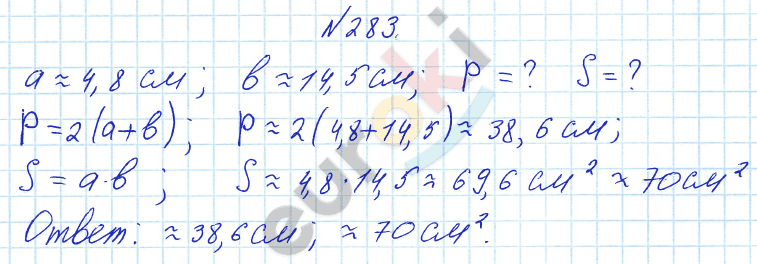 №283.
a ≈ 4,8 см; в ≈ 14,5 см; P = ? S = ?
P = 2(a+в); P ≈ 2(4,8+14,5) ≈ 38,6 см;
S = a·в; S ≈ 4,8·14,5 ≈ 69,6 см² ≈ 70 см²
Ответ: ≈ 38,6 см; ≈ 70 см².
euroki